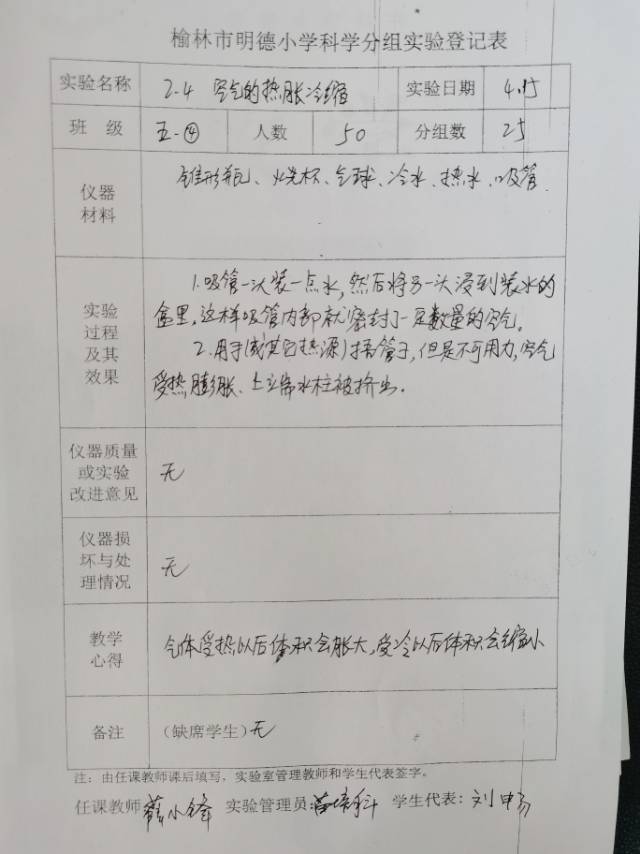 榆林市明德小学科学分组实验登记表
实验名称 2.4 空气的热胀冷缩 实验日期 4.15
班 级 五.④ 人数 50 分组数 25
仪器
材料
锥形瓶、烧杯、气球、冷水、热水、吸管
实验
过程
及其
效果
1.吸管一头装一点水,然后将另一头浸到装水的
盒里,这样吸管内部就密封了一定数量的空气。
2.用手(或其它热源)捂管子,但是不可用力,空气
受热膨胀、上立席水柱被挤出.
仪器质量
或实验
改进意见
无
仪器损
坏与处
理情况
无
教学
心得
气体受热以后体积会胀大,受冷以后体积会缩小
备注 (缺席学生)无
注:由任课教师课后填写,实验室管理教师和学生代表签字。
任课教师 小锋 实验管理员: 学生代表:刘